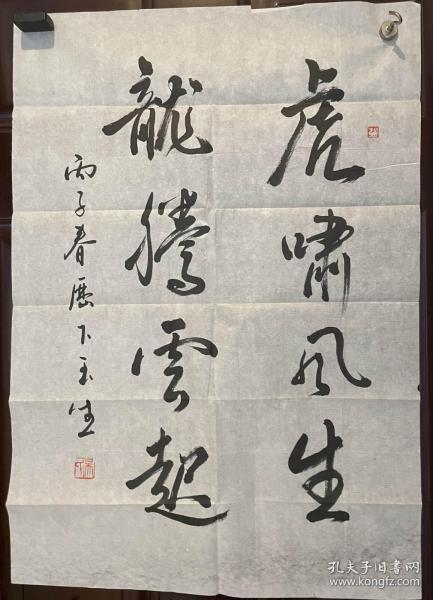 虎啸風生
龍騰雲起
丙子春歷下玉生
孔夫子旧书网
www.kongfz.com